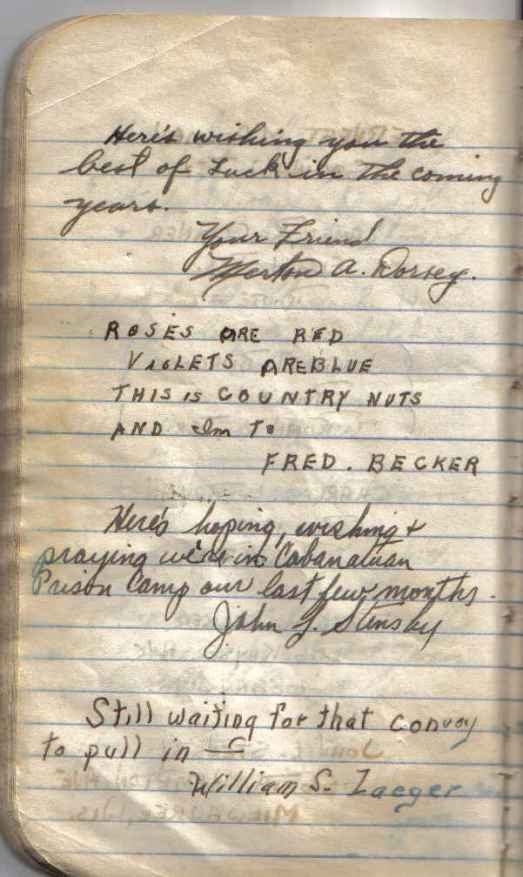 Here's wishing you the
best of Luck in the coming
years.
Your Friend
Merton A. Dorsey.
ROSES ARE RED
VIOLETS ARE BLUE
THIS IS COUNTRY NUTS
AND Im To
FRED. BECKER
Here's hoping, wishing &
praying we're in Cabanatuan
Prison Camp our last few months.
John J. Stensby
Still waiting for that convoy
to pull in
William S. Zaeger